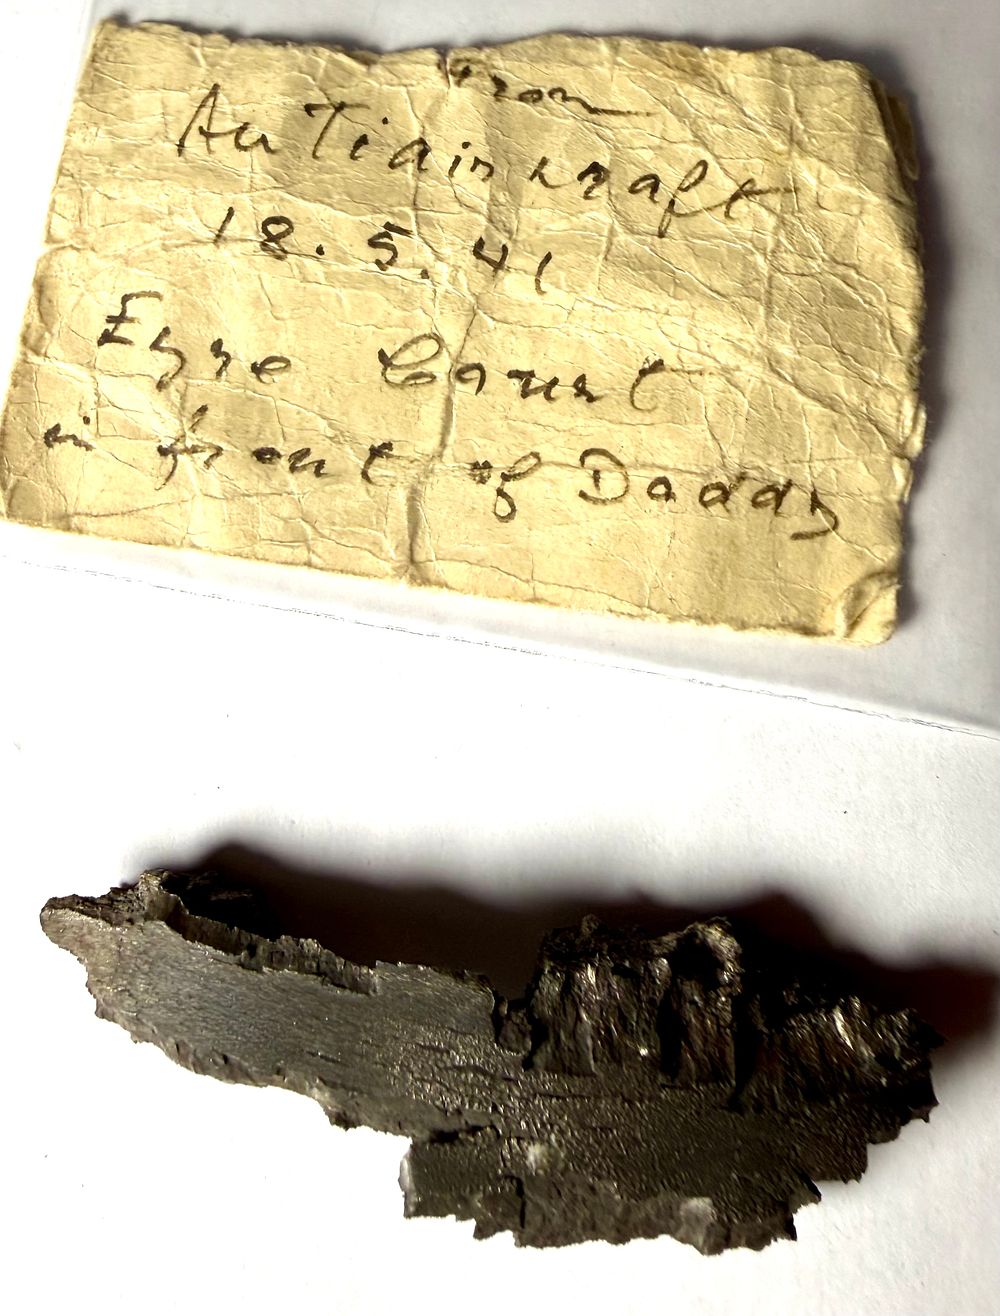 from
AnTiaircraft
18.5.41
Eyre Court
in front of Daddy